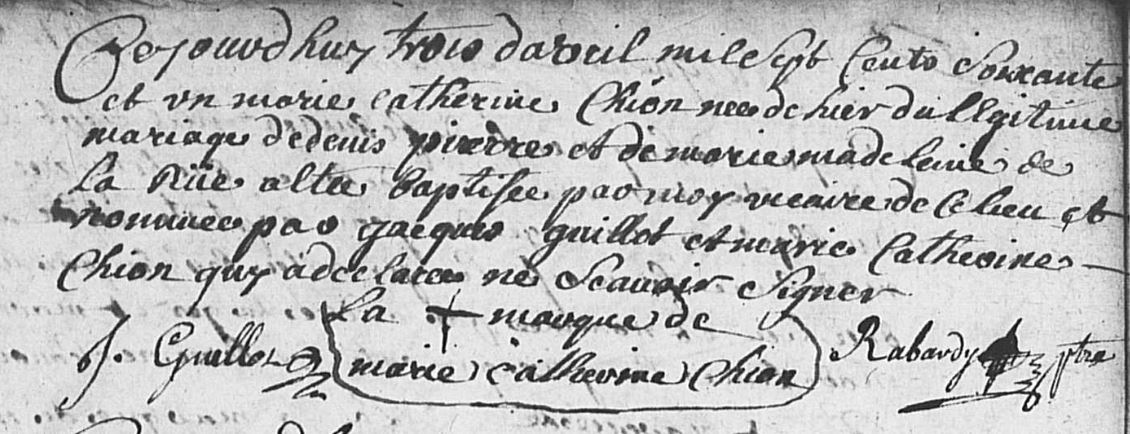 Cejourdhuy trois davril mil sept cents soixante
et un marie catherine Chion nee de hier du legitime
mariage de denis pierre et de marie madeleine de
la Rüe a ete baptisee par moy vicaire de ce lieu et
nommee par jacques guillot et marie Catherine
Chion quy a declaree ne scauoir signer
La + marque de
marie catherine Chion
J. Guillot
Rabardy ptre